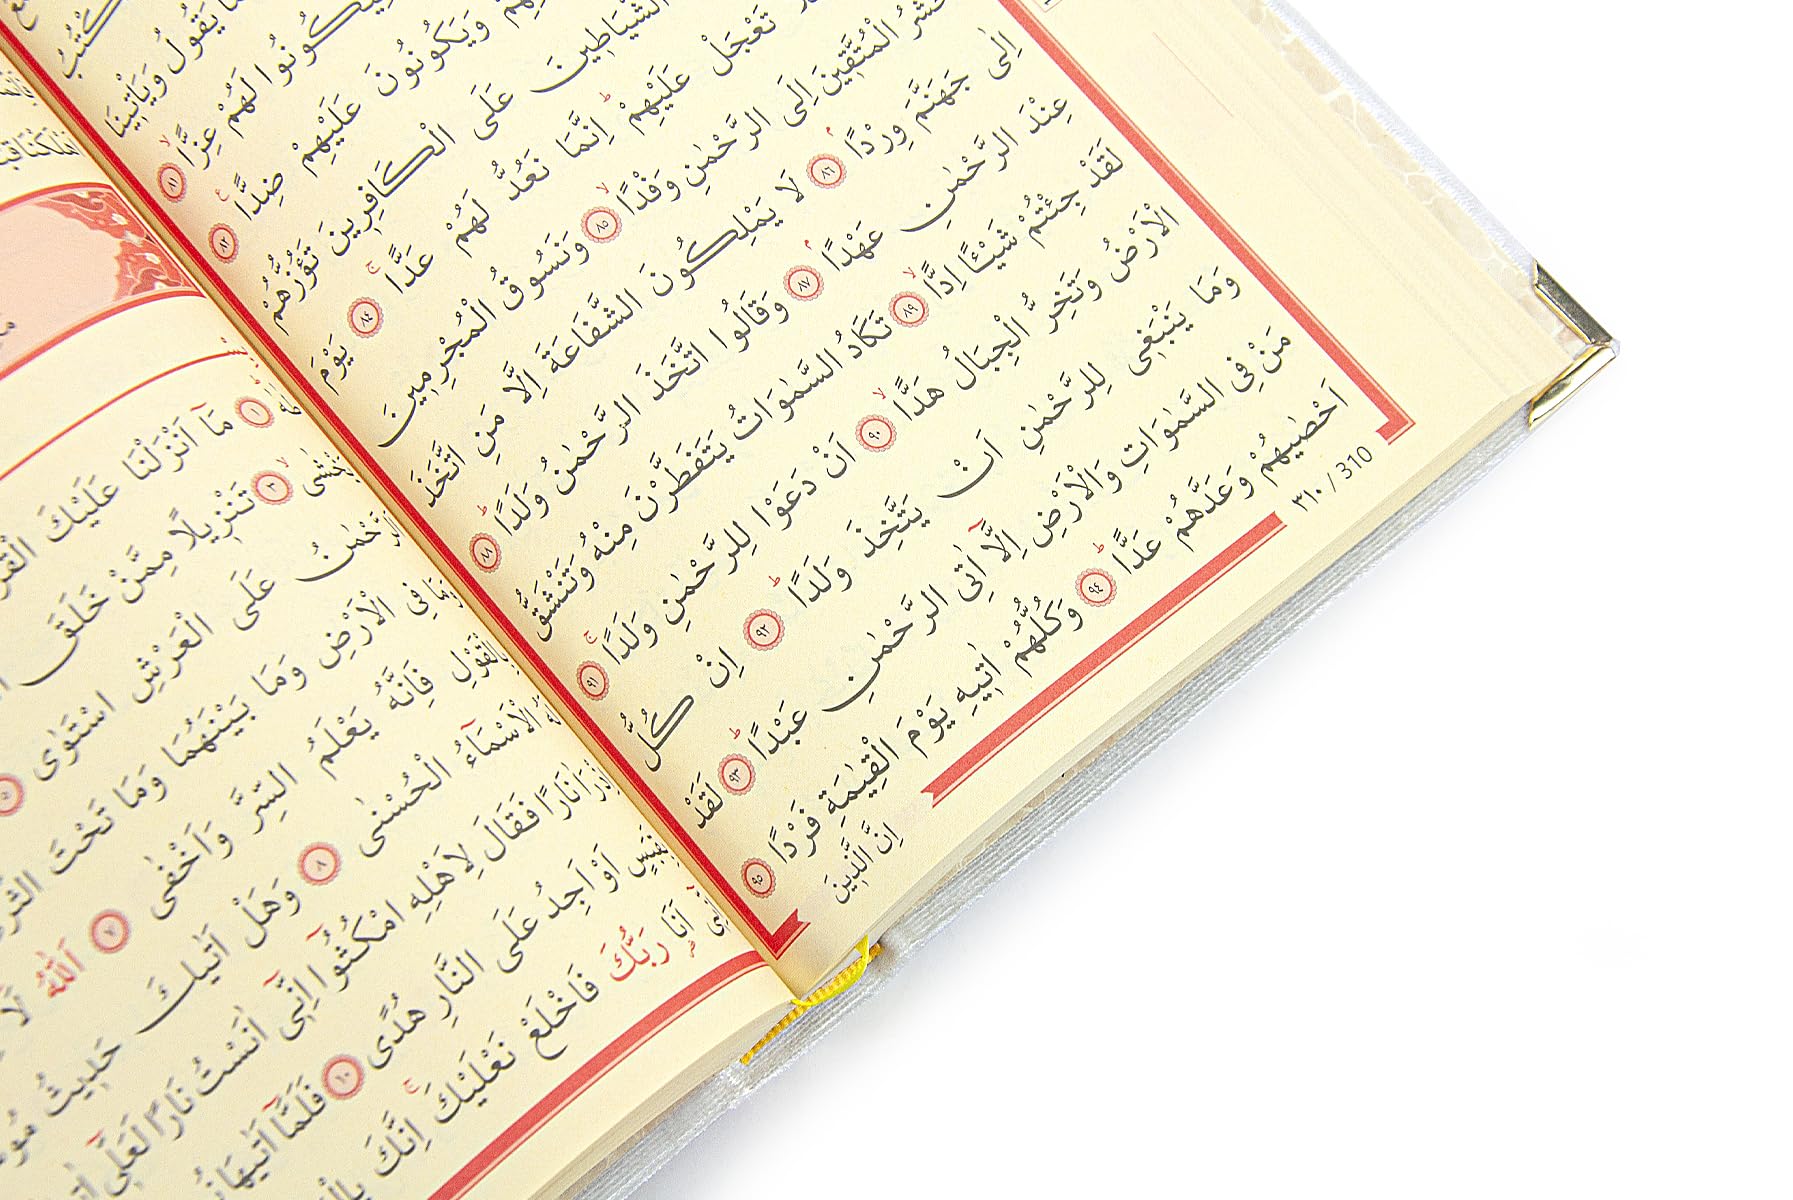 مَا يَقُولُ وَيَأْتِينَا
لِيَكُونُوا لَهُمْ عِزًّا ﴿٨١﴾
وَيَكُونُونَ عَلَيْهِمْ ضِدًّا ﴿٨٢﴾
الشَّيَاطِينَ عَلَى الْكَافِرِينَ تَؤُزُّهُمْ
تَعْجَلْ عَلَيْهِمْ اِنَّمَا نَعُدُّ لَهُمْ عَدًّا ﴿٨٤﴾ يَوْمَ
نَحْشُرُ الْمُتَّقِينَ اِلَى الرَّحْمٰنِ وَفْدًا ﴿٨٥﴾ وَنَسُوقُ الْمُجْرِمِينَ
اِلٰى جَهَنَّمَ وِرْدًا ﴿٨٦﴾ لَا يَمْلِكُونَ الشَّفَاعَةَ اِلَّا مَنِ اتَّخَذَ
عِنْدَ الرَّحْمٰنِ عَهْدًا ﴿٨٧﴾ وَقَالُوا اتَّخَذَ الرَّحْمٰنُ وَلَدًا ﴿٨٨﴾
لَقَدْ جِئْتُمْ شَيْـًٔا اِدًّا ﴿٨٩﴾ تَكَادُ السَّمٰوَاتُ يَتَفَطَّرْنَ مِنْهُ وَتَنْشَقُّ
الْاَرْضُ وَتَخِرُّ الْجِبَالُ هَدًّا ﴿٩٠﴾ اَنْ دَعَوْا لِلرَّحْمٰنِ وَلَدًا ﴿٩١﴾
وَمَا يَنْبَغِى لِلرَّحْمٰنِ اَنْ يَتَّخِذَ وَلَدًا ﴿٩٢﴾ اِنْ كُلُّ
مَنْ فِى السَّمٰوَاتِ وَالْاَرْضِ اِلَّٓا اٰتِى الرَّحْمٰنِ عَبْدًا ﴿٩٣﴾ لَقَدْ
اَحْصٰيهُمْ وَعَدَّهُمْ عَدًّا ﴿٩٤﴾ وَكُلُّهُمْ اٰتِيهِ يَوْمَ الْقِيٰمَةِ فَرْدًا ﴿٩٥﴾
٣١٠ / 310
اِنَّ الَّذِينَ
﴿١﴾ مَٓا اَنْزَلْنَا عَلَيْكَ
يَخْشٰى ﴿٣﴾ تَنْزِيلًا مِمَّنْ خَلَقَ
اَلرَّحْمٰنُ عَلَى الْعَرْشِ اسْتَوٰى ﴿٥﴾
وَمَا فِى الْاَرْضِ وَمَا بَيْنَهُمَا وَمَا تَحْتَ الثَّرٰى
بِالْقَوْلِ فَاِنَّهُ يَعْلَمُ السِّرَّ وَاَخْفٰى ﴿٧﴾ اَللّٰهُ لَٓا
لَهُ الْاَسْمَٓاءُ الْحُسْنٰى ﴿٨﴾ وَهَلْ اَتٰيكَ حَدِيثُ
نَارًا فَقَالَ لِاَهْلِهِ امْكُثُٓوا اِنِّٓى اٰنَسْتُ نَارًا لَعَلِّٓى
بِقَبَسٍ اَوْ اَجِدُ عَلَى النَّارِ هُدًى ﴿١٠﴾ فَلَمَّٓا اَتٰيهَا
اِنِّٓى اَنَا رَبُّكَ فَاخْلَعْ نَعْلَيْكَ اِنَّكَ